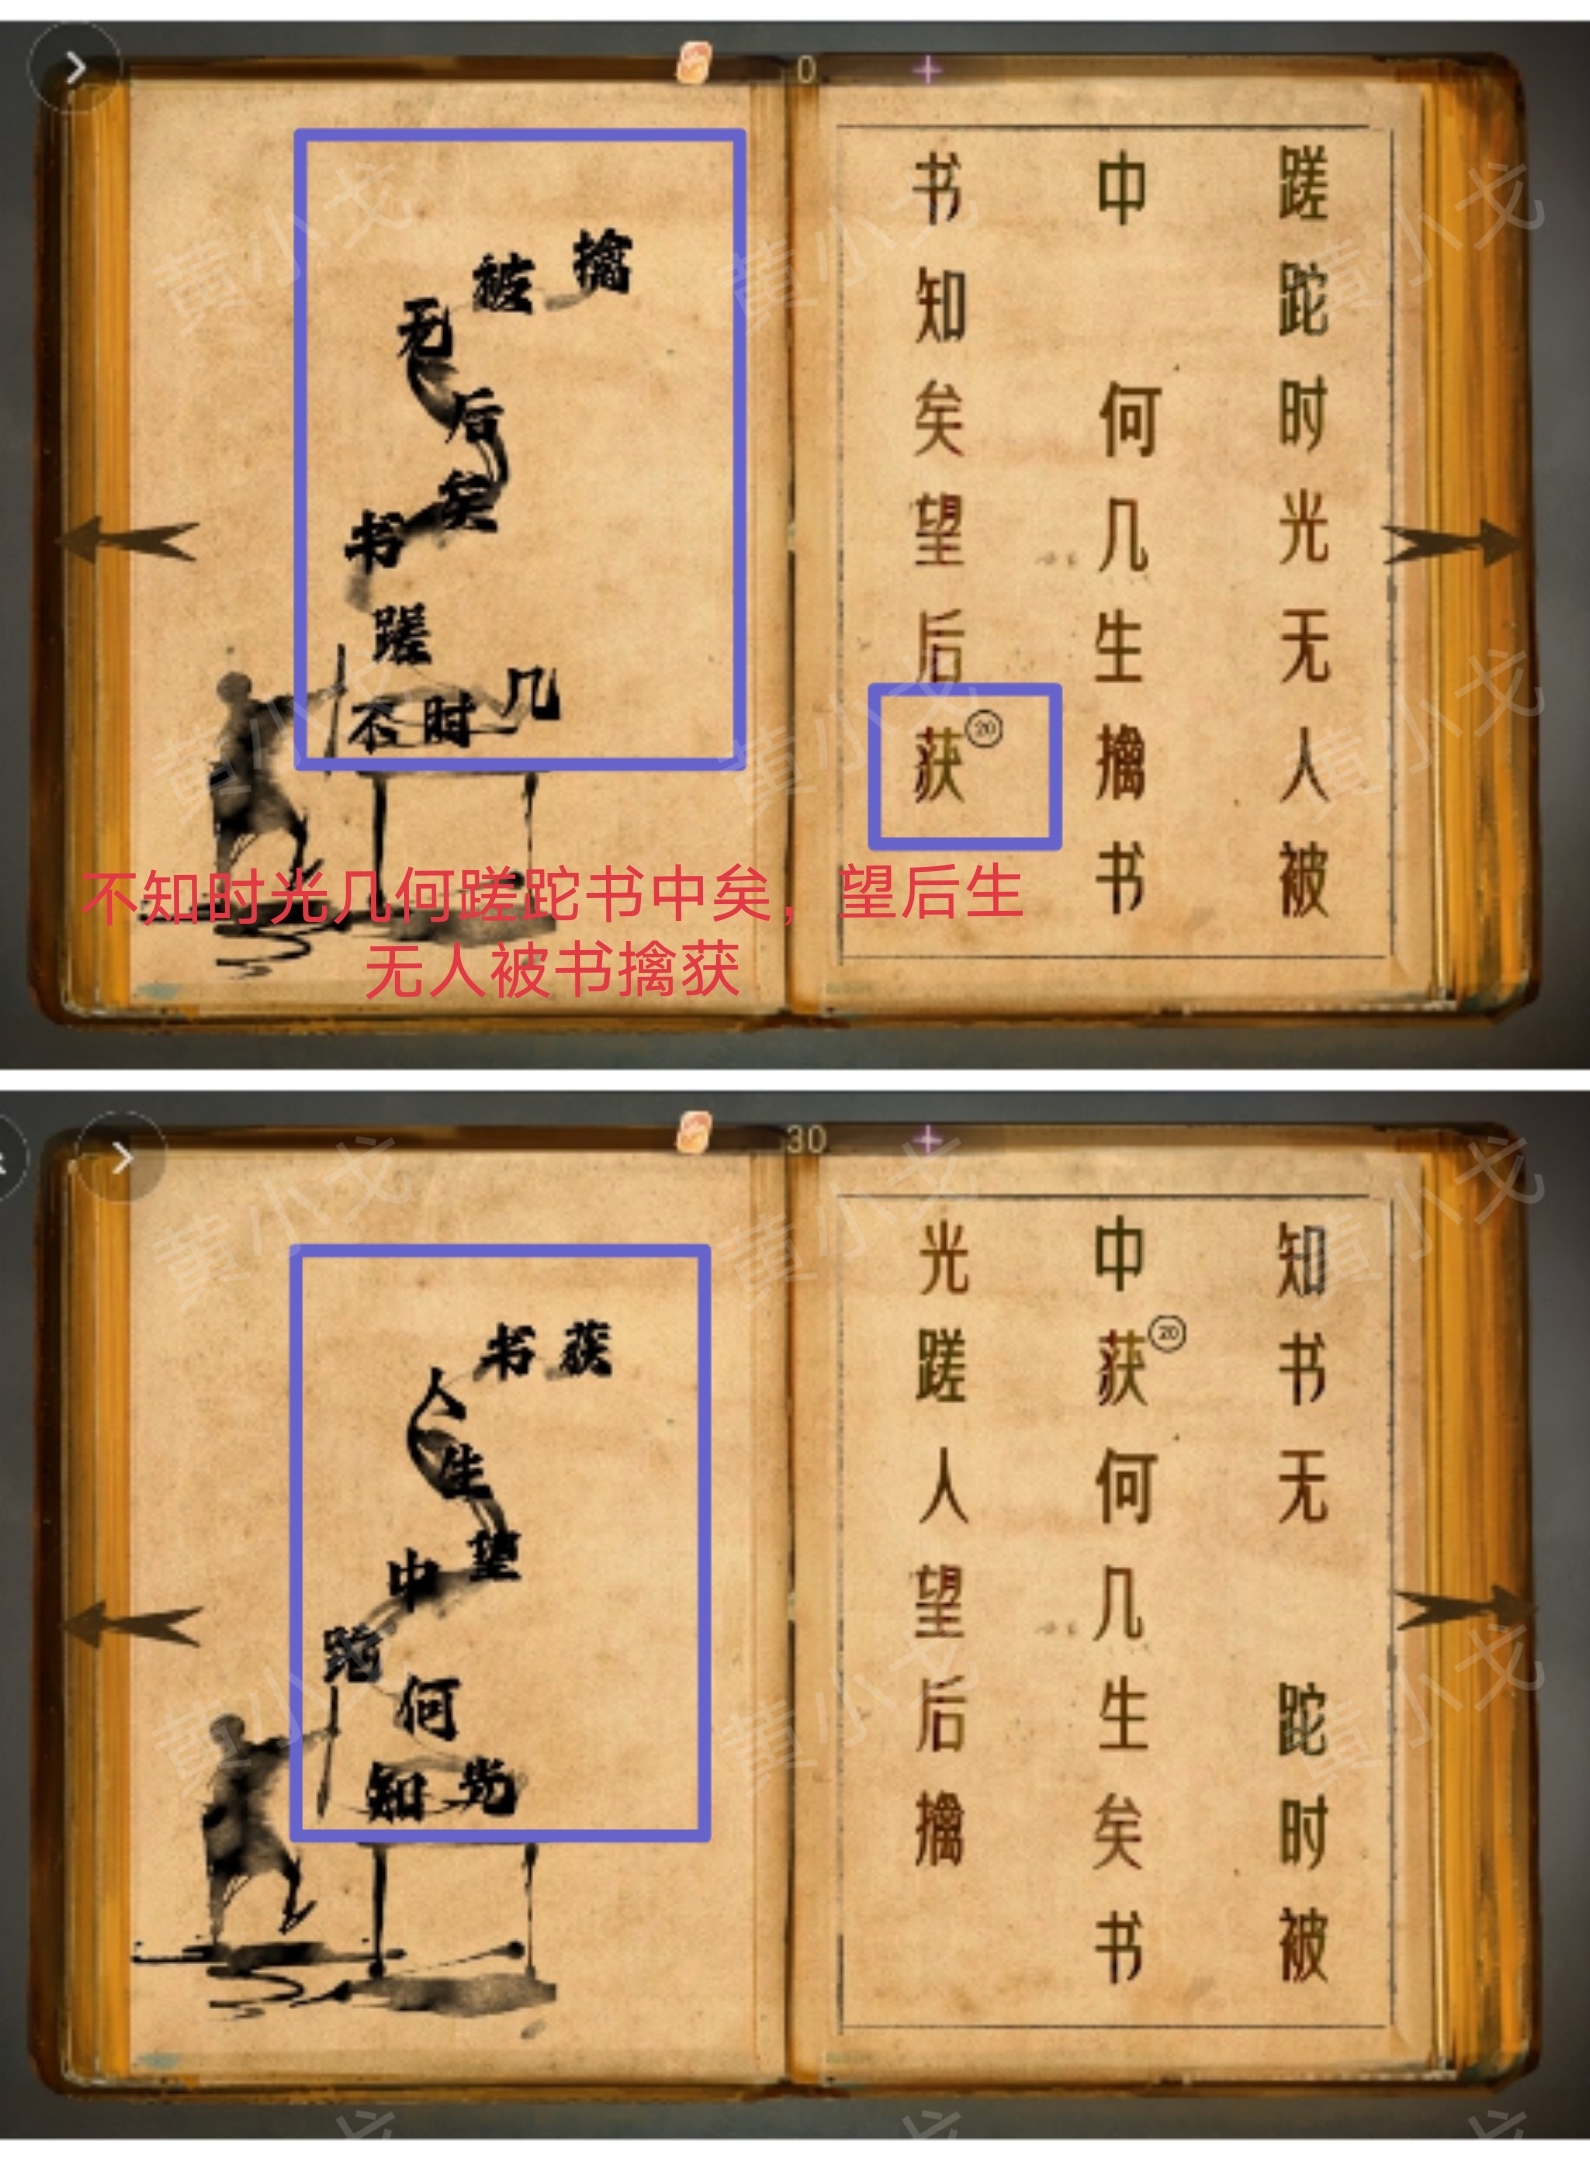 0
擒
被
无
后
矣
书
蹉
几
不时
书知矣望后获
20
中何几生擒书
蹉跎时光无人被
不知时光几何蹉跎书中矣，望后生
无人被书擒获
30
书获
人
生
望
中
跎
何
知光
光蹉人望后擒
中获何几生矣书
20
知书无跎时被
黄小戈